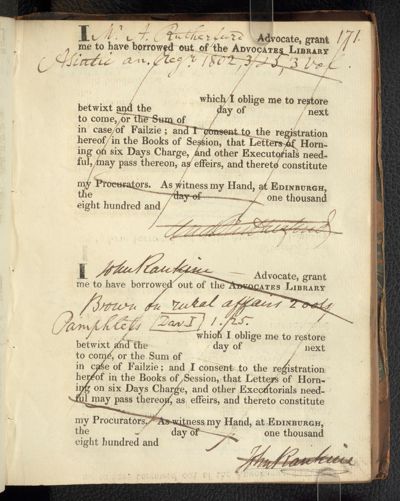 171.
I Mr. A. Rutherfurd Advocate, grant
me to have borrowed out of the ADVOCATES LIBRARY
Asiatic an. Regr. 1802, 3 &
which I oblige me to restore
betwixt and the day of next
to come, or the Sum of
in case of Failzie; and I consent to the registration
hereof in the Books of Session, that Letters of Horn-
ing on six Days Charge, and other Executorials need-
ful, may pass thereon, as effeirs, and thereto constitute
my Procurators. As witness my Hand, at EDINBURGH,
the day of one thousand
eight hundred and
I John Rankine Advocate, grant
me to have borrowed out of the ADVOCATES LIBRARY
Brown on rural affairs 2 vols
Pamphlets 1. 25.
which I oblige me to restore
betwixt and the day of next
to come, or the Sum of
in case of Failzie; and I consent to the registration
hereof in the Books of Session, that Letters of Horn-
ing on six Days Charge, and other Executorials need-
ful may pass thereon, as effeirs, and thereto constitute
my Procurators. As witness my Hand, at EDINBURGH,
the day of one thousand
eight hundred and
John Rankine